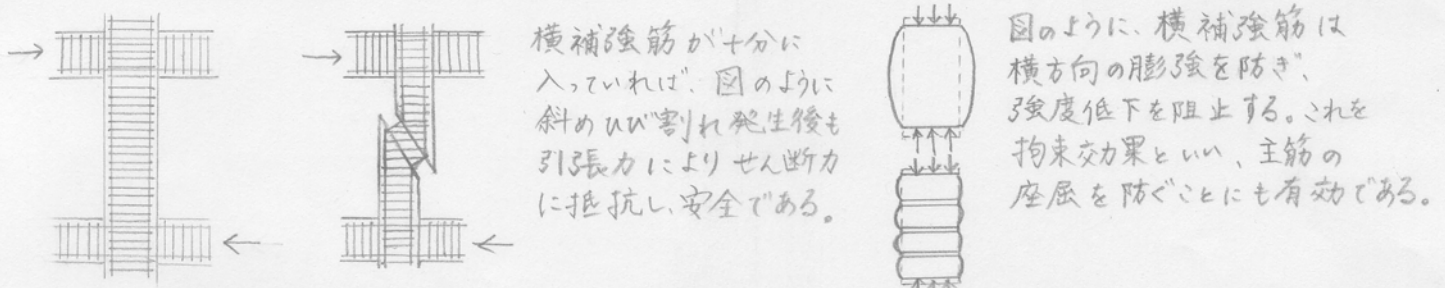 横補強筋が十分に
入っていれば、図のように
斜めひび割れ発生後も
引張力によりせん断力
に抵抗し、安全である。
図のように、横補強筋は
横方向の膨強を防ぎ、
強度低下を阻止する。これを
拘束効果といい、主筋の
座屈を防ぐことにも有効である。